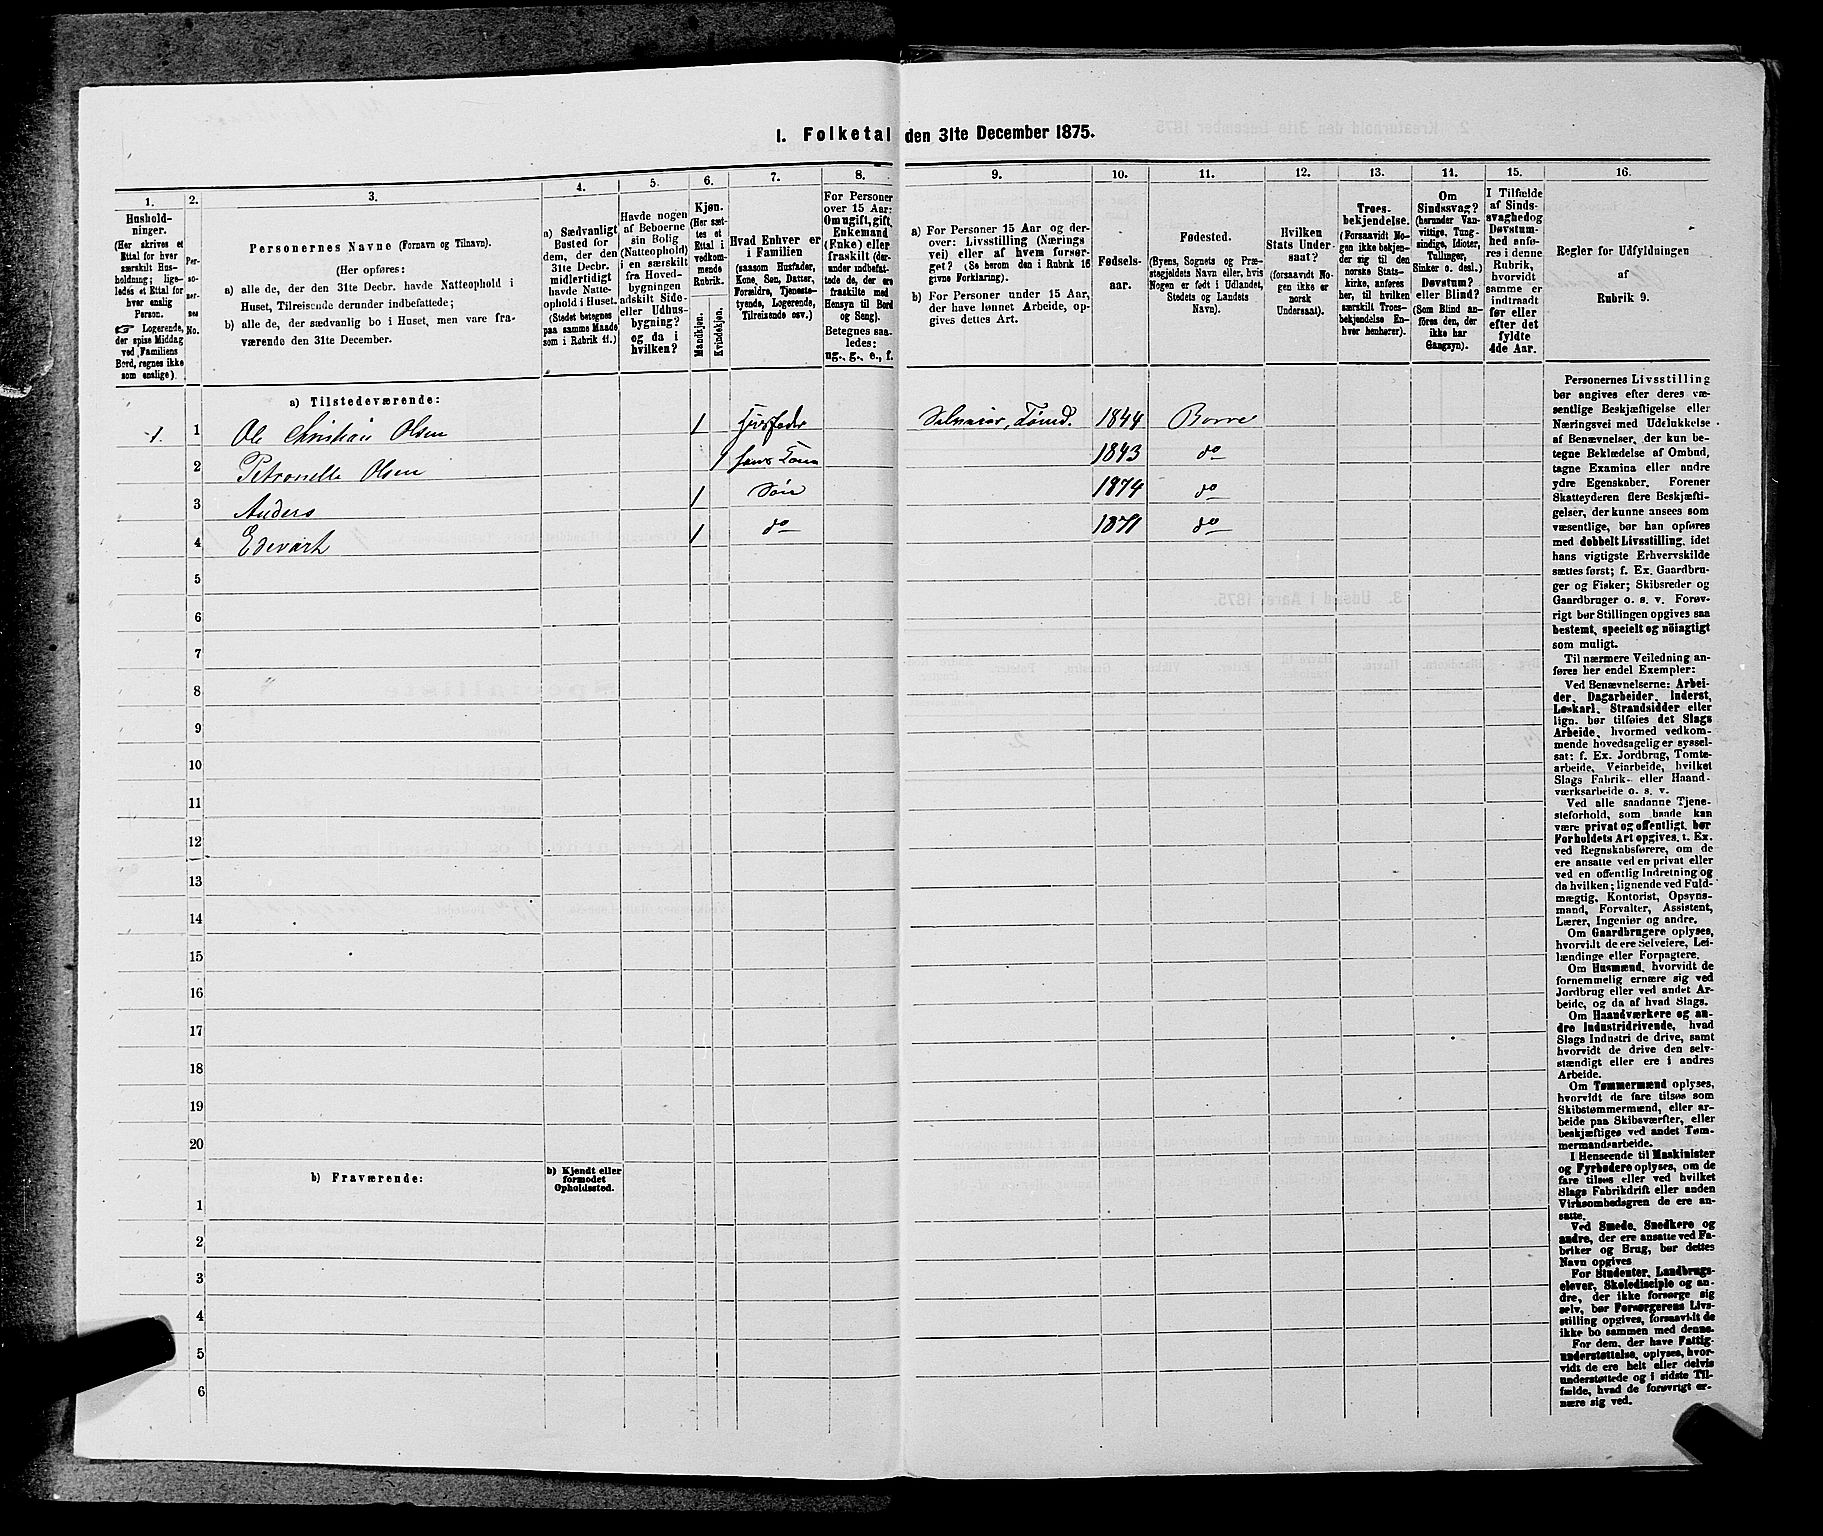 I. Folketal den 31te December 1875.
1.
Hushold-
ninger.
(Her skrives et
Ettal for hver
særskilt Hus-
holdning; lige-
ledes et Ettal for
hver enslig
Person.
☞ Logerende,
der spise Middag
ved Familiens
Bord, regnes ikke
som enslige).
2.
Per-
so-
ner-
nes
No.
3.
Personernes Navne (Fornavn og Tilnavn).
(Her opføres:
a) alle de, der den 31te Decbr. havde Natteophold i
Huset, Tilreisende derunder indbefattede;
b) alle de, der sædvanlig bo i Huset, men vare fra-
værende den 31te December.
4.
a) Sædvanligt
Bosted for
dem, der den
31te Decbr.
midlertidigt
havde Natte-
ophold i Huset.
(Stedet betegnes
paa samme Maade
som i Rubrik 11.)
5.
Havde nogen
af Beboerne
sin Bolig
(Natteophold)
i en særskilt
fra Hoved-
bygningen
adskilt Side-
eller Udhus-
bygning?
og da i
hvilken?
6.
Kjøn.
(Her sæt-
tes et
Ettal i
vedkom-
mende
Rubrik.
Mandkjøn.
Kvindekjøn.
7.
Hvad Enhver er
i Familien
(saasom Husfader,
Kone, Søn, Datter,
Forældre, Tjeneste-
tyende, Logerende,
Tilreisende osv.)
8.
For Personer
over 15 Aar:
Om ugift, gift,
Enkemand
(Enke) eller
fraskilt (der-
under indbefat-
tede de, der ere
fraskilte med
Hensyn til Bord
og Seng).
Betegnes saa-
ledes:
ug., g., e., f.
9.
a) For Personer 15 Aar og der-
over: Livsstilling (Nærings
vei) eller af hvem forsør-
get? (Se herom den i Rubrik 16
givne Forklaring).
b) For Personer under 15 Aar,
der have lønnet Arbeide, op-
gives dettes Art.
10.
Fødsels-
aar.
11.
Fødested.
(Byens, Sognets og Præ-
stegjeldets Navn eller, hvis
Nogen er født i Udlandet,
Stedets og Landets
Navn).
12.
Hvilken
Stats Under-
saat?
(forsaavidt No-
gen ikke er
norsk
Undersaat).
13.
Troes-
bekjendelse.
(Forsaavidt No-
gen ikke bekjen-
der sig til den
norske Stats-
kirke, anføres
her, til hvilken
særskilt Troes-
bekjendelse En-
hver henhører).
14.
Om
Sindssvag?
(herunder Van-
vittige, Tung-
sindige, Idioter,
Tullinger,
Sinker o. desl.)
Døvstum?
eller Blind?
(Som Blind an-
føres den, der
ikke har
Gangsyn).
15.
I Tilfælde
af Sinds-
svaghed og
Døvstum-
hed anfø-
res i denne
Rubrik,
hvorvidt
samme er
indtraadt
før eller
efter det
fyldte
4de Aar.
16.
Regler for Udfyldningen
af
Rubrik 9.
a) Tilstedeværende:
1. 1 Ole Christian Olsen 1 Husfader Selveier, Tømd. 1844 Borre
2 Petronelle Olsen 1 hans Kone 1843 do
3 Anders 1 Søn 1874 do
4 Edevart 1 do 1871 do
5
6
7
8
9
10
11
12
13
14
15
16
17
18
19
20
b) Fraværende:
b) Kjendt eller
formodet
Opholdssted.
1
2
3
4
5
6
Personernes Livsstilling
bør angives efter deres væ-
sentlige Beskjæftigelse eller
Næringsvei med Udelukkelse
af Benævnelser, der kun be-
tegne Beklædelse af Ombud,
tagne Examina eller andre
ydre Egenskaber. Forener
Skatteyderen flere Beskjæfti-
gelser, der kunne ansees som
væsentlige, bør han opføres
med dobbelt Livsstilling, idet
hans vigtigste Erhvervskilde
sættes først; f. Ex. Gaardbru-
ger og Fisker; Skibsreder og
Gaardbruger o. s. v. Forøv-
rigt bør Stillingen opgives saa
bestemt, specielt og nöiagtigt
som muligt.
Til nærmere Veiledning an-
føres her endel Exempler:
Ved Benævnelserne: Arbei-
der, Dagarbeider, Inderst,
Løskarl, Strandsidder eller
lign. bør tilføies det Slags
Arbeide, hvormed vedkom-
mende hovedsagelig er syssel-
sat: f. Ex. Jordbrug, Tomte-
arbeide, Veiarbeide, hvilket
Slags Fabrik- eller Haand-
værksarbeide o. s. v.
Ved alle saadanne Tjene-
steforhold, som baade kan
være privat og offentligt, bør
Forholdets Art opgives, t. Ex.
ved Regnskabsførere, om de
ere ansatte ved en privat eller
ved en offentlig Indretning og
da hvilken; lignende ved Fuld-
mægtig, Kontorist, Opsyns-
mand, Forvalter, Assistent,
Lærer, Ingeniør og andre.
Om Gaardbrugere oplyses,
hvorvidt de ere Selveiere, Lei-
lændinge eller Forpagtere.
Om Husmænd, hvorvidt de
fornemmelig ernære sig ved
Jordbrug eller ved andet Ar-
beide, og da af hvad Slags.
Om Haandværkere og an-
dre Industridrivende, hvad
Slags Industri de drive, samt
hvorvidt de drive den selv-
stændigt eller ere i andres
Arbeide.
Om Tømmermænd oplyses,
hvorvidt de fare tilsøs som
Skibstømmermænd, eller ar-
beide paa Skibsværfter, eller
beskjæftiges ved andet Tøm-
mermandsarbeide.
I Henseende til Maskinister
og Fyrbødere oplyses, om de
fare tilsøs eller ved hvilket
Slags Fabrikdrift eller anden
Virksombedsgren de ere an-
satte.
Ved Smede, Snedkere og
andre, der ere ansatte ved Fa-
briker og Brug, bør dettes
Navn opgives
For Studenter, Landbrugs-
elever, Skoledisciple og an-
dre, der ikke forsørge sig
selv, bør Forsørgerens Livs-
stilling opgives, forsaavidt de
ikke bo sammen med denne.
For dem, der have Fattig-
understøttelse, oplyses, hvor-
vidt de ere helt eller delvis
understøttede og i sidste Til-
fælde, hvad de forøvrigt er-
nære sig ved.